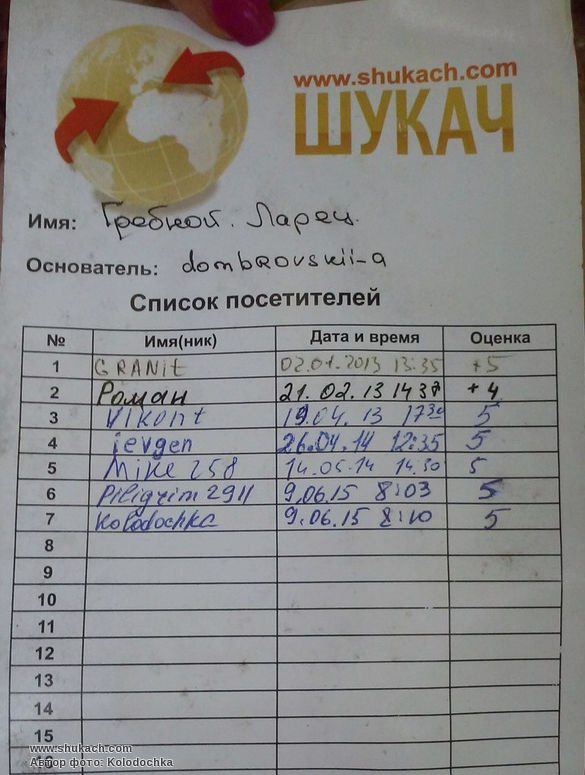 www.shukach.com
ШУКАЧ
Имя: Гребной. Ларец.
Основатель: dombrovskii-a
Список посетителей
№ Имя(ник) Дата и время Оценка
1 GRANit 02.01.2013 13:35 +5
2 Роман 21.02.13 14 37 +4
3 Vikont 19.04.13 17 30 5
4 ievgen 26.04.14 12:35 5
5 Mike 258 14.05.14 14.30 5
6 Piligrim 2911 9.06.15 8:03 5
7 Kolodochka 9.06.15 8:10 5
8
9
10
11
12
13
14
15
16
www.shukach.com
Автор фото: Kolodochka